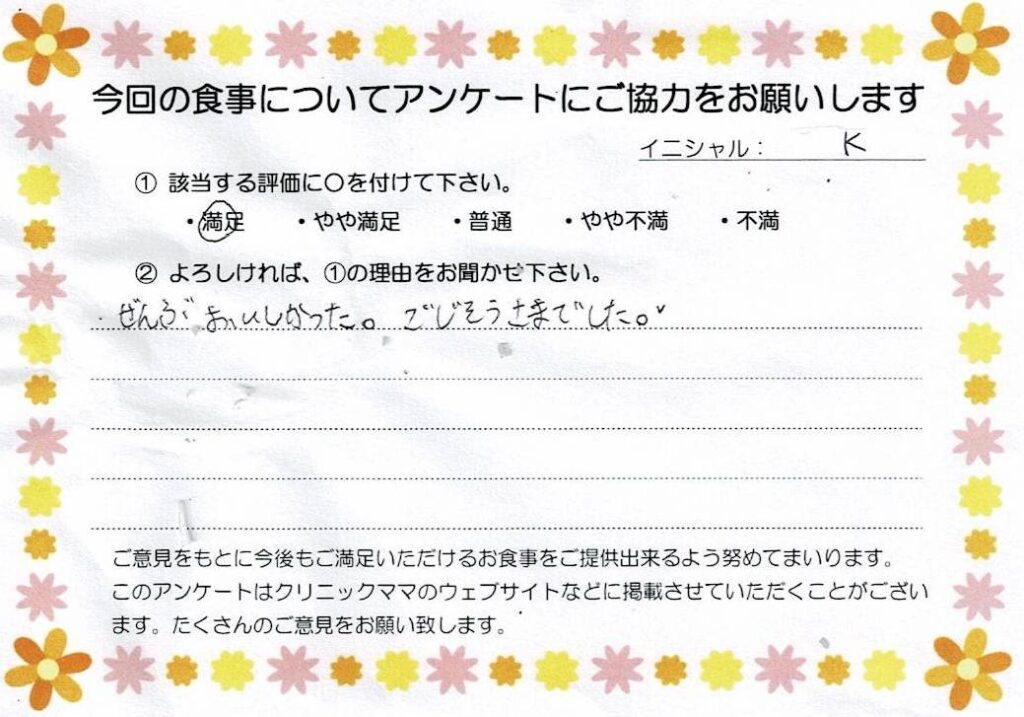 今回の食事についてアンケートにご協力をお願いします
イニシャル： K
① 該当する評価に〇を付けて下さい。
・満足 ・やや満足 ・普通 ・やや不満 ・不満
② よろしければ、①の理由をお聞かせ下さい。
ぜんぶ おいしかった。 ごじそうさまでした。
ご意見をもとに今後もご満足いただけるお食事をご提供出来るよう努めてまいります。
このアンケートはクリニックママのウェブサイトなどに掲載させていただくことがござい
ます。たくさんのご意見をお願い致します。